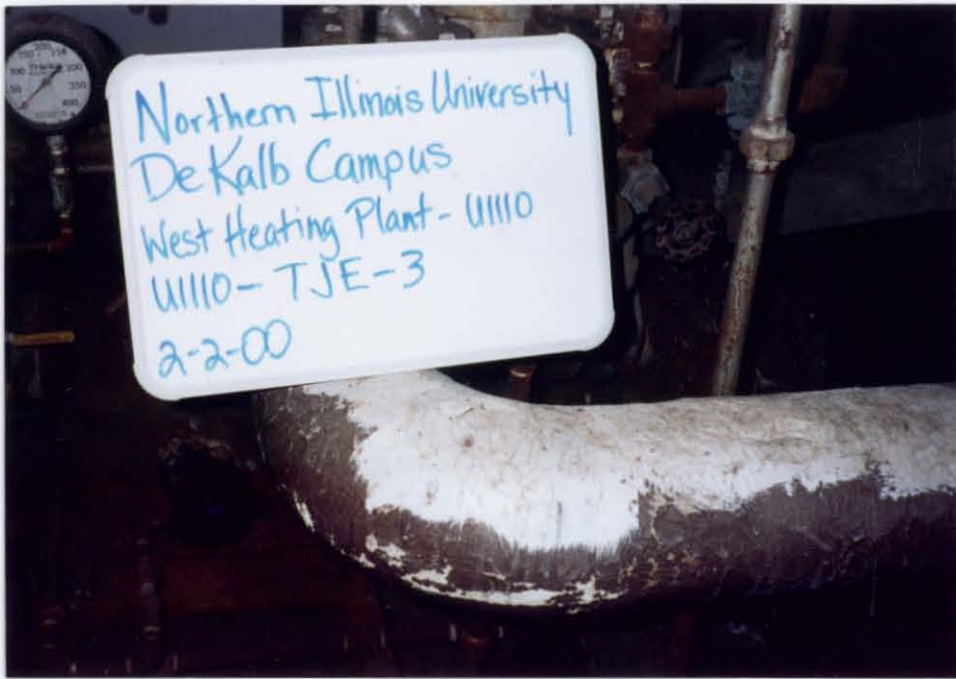 Northern Illinois University
De Kalb Campus
West Heating Plant - U1110
U1110 - TJE - 3
2-2-00